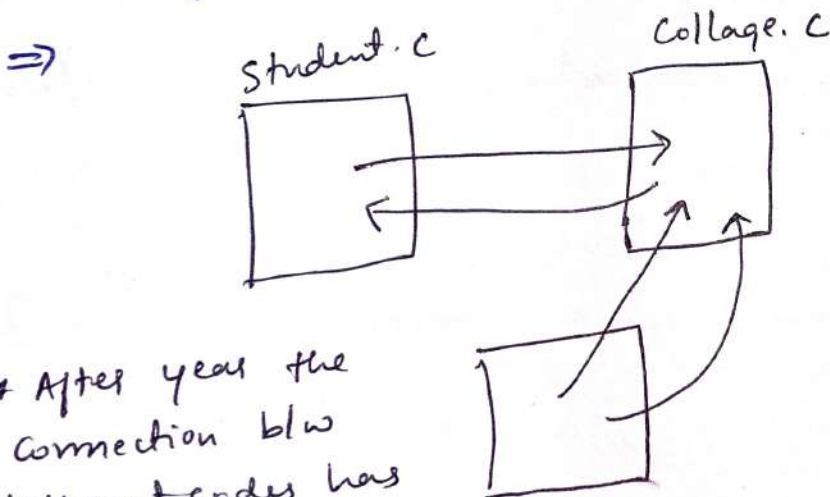 ⇒
Student.c
Collage.c
* After year the
connection b/w
has